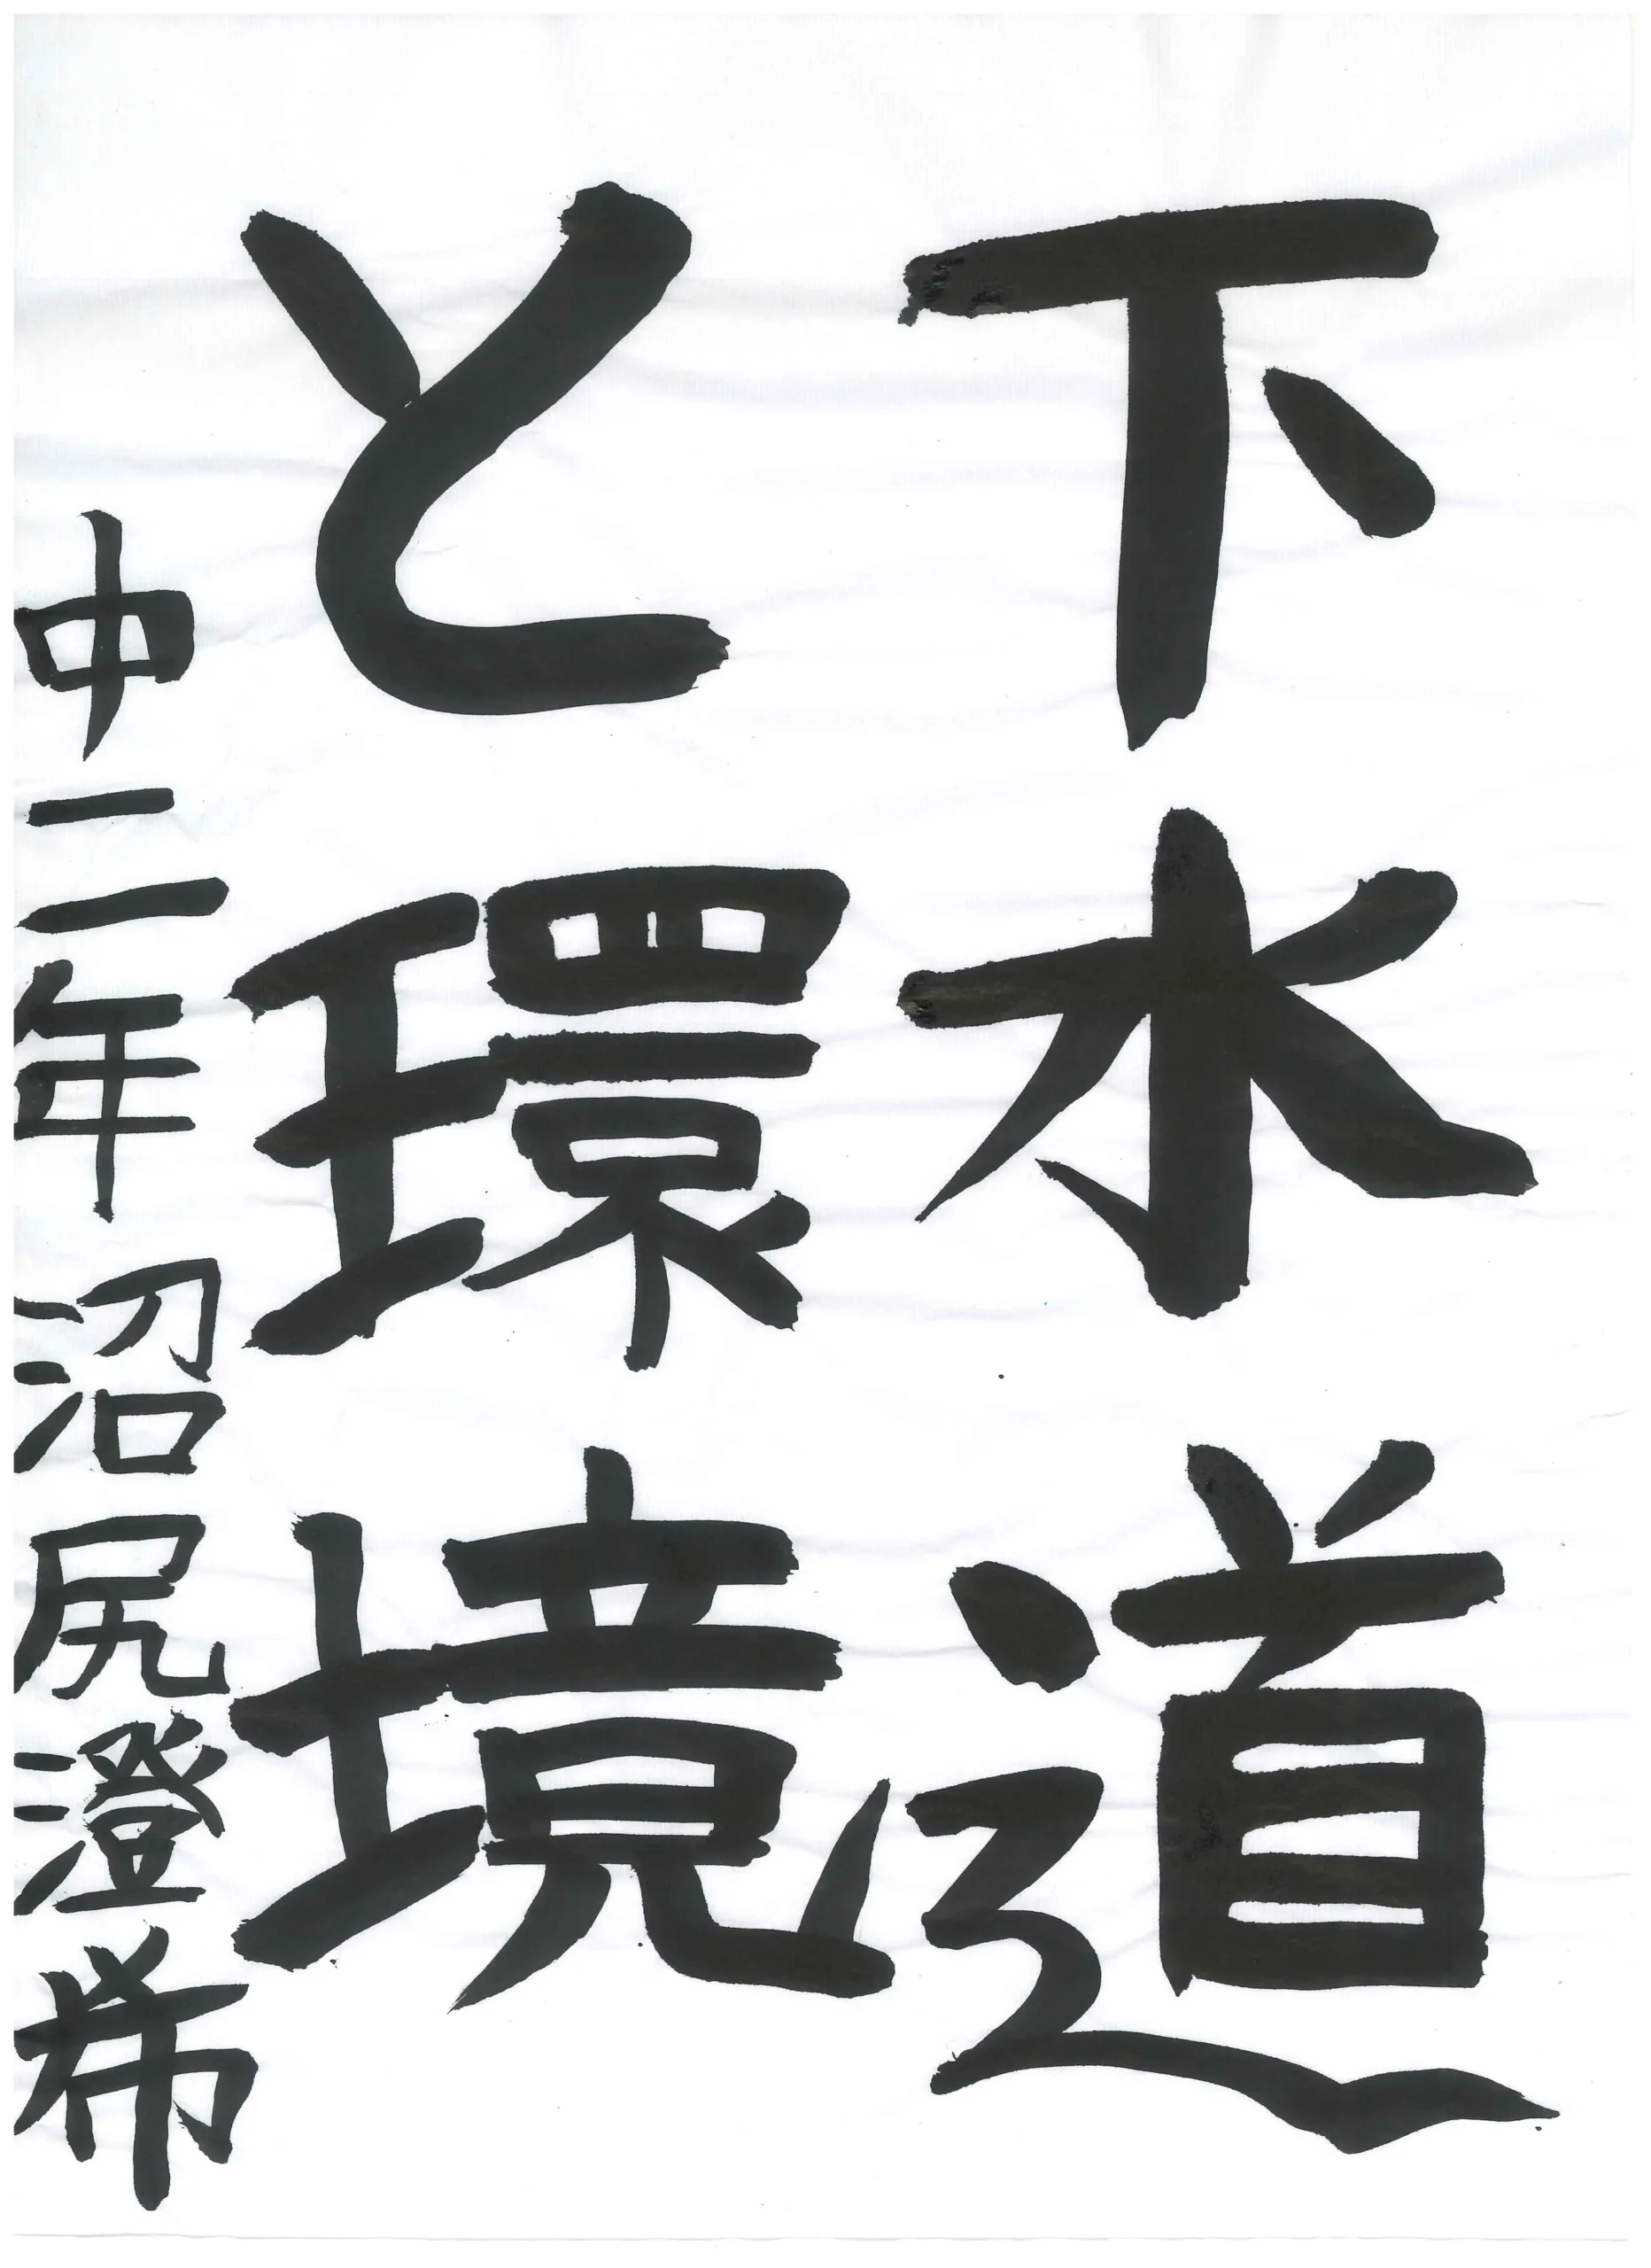 下水道
と環境
中二年 沼尻澄希